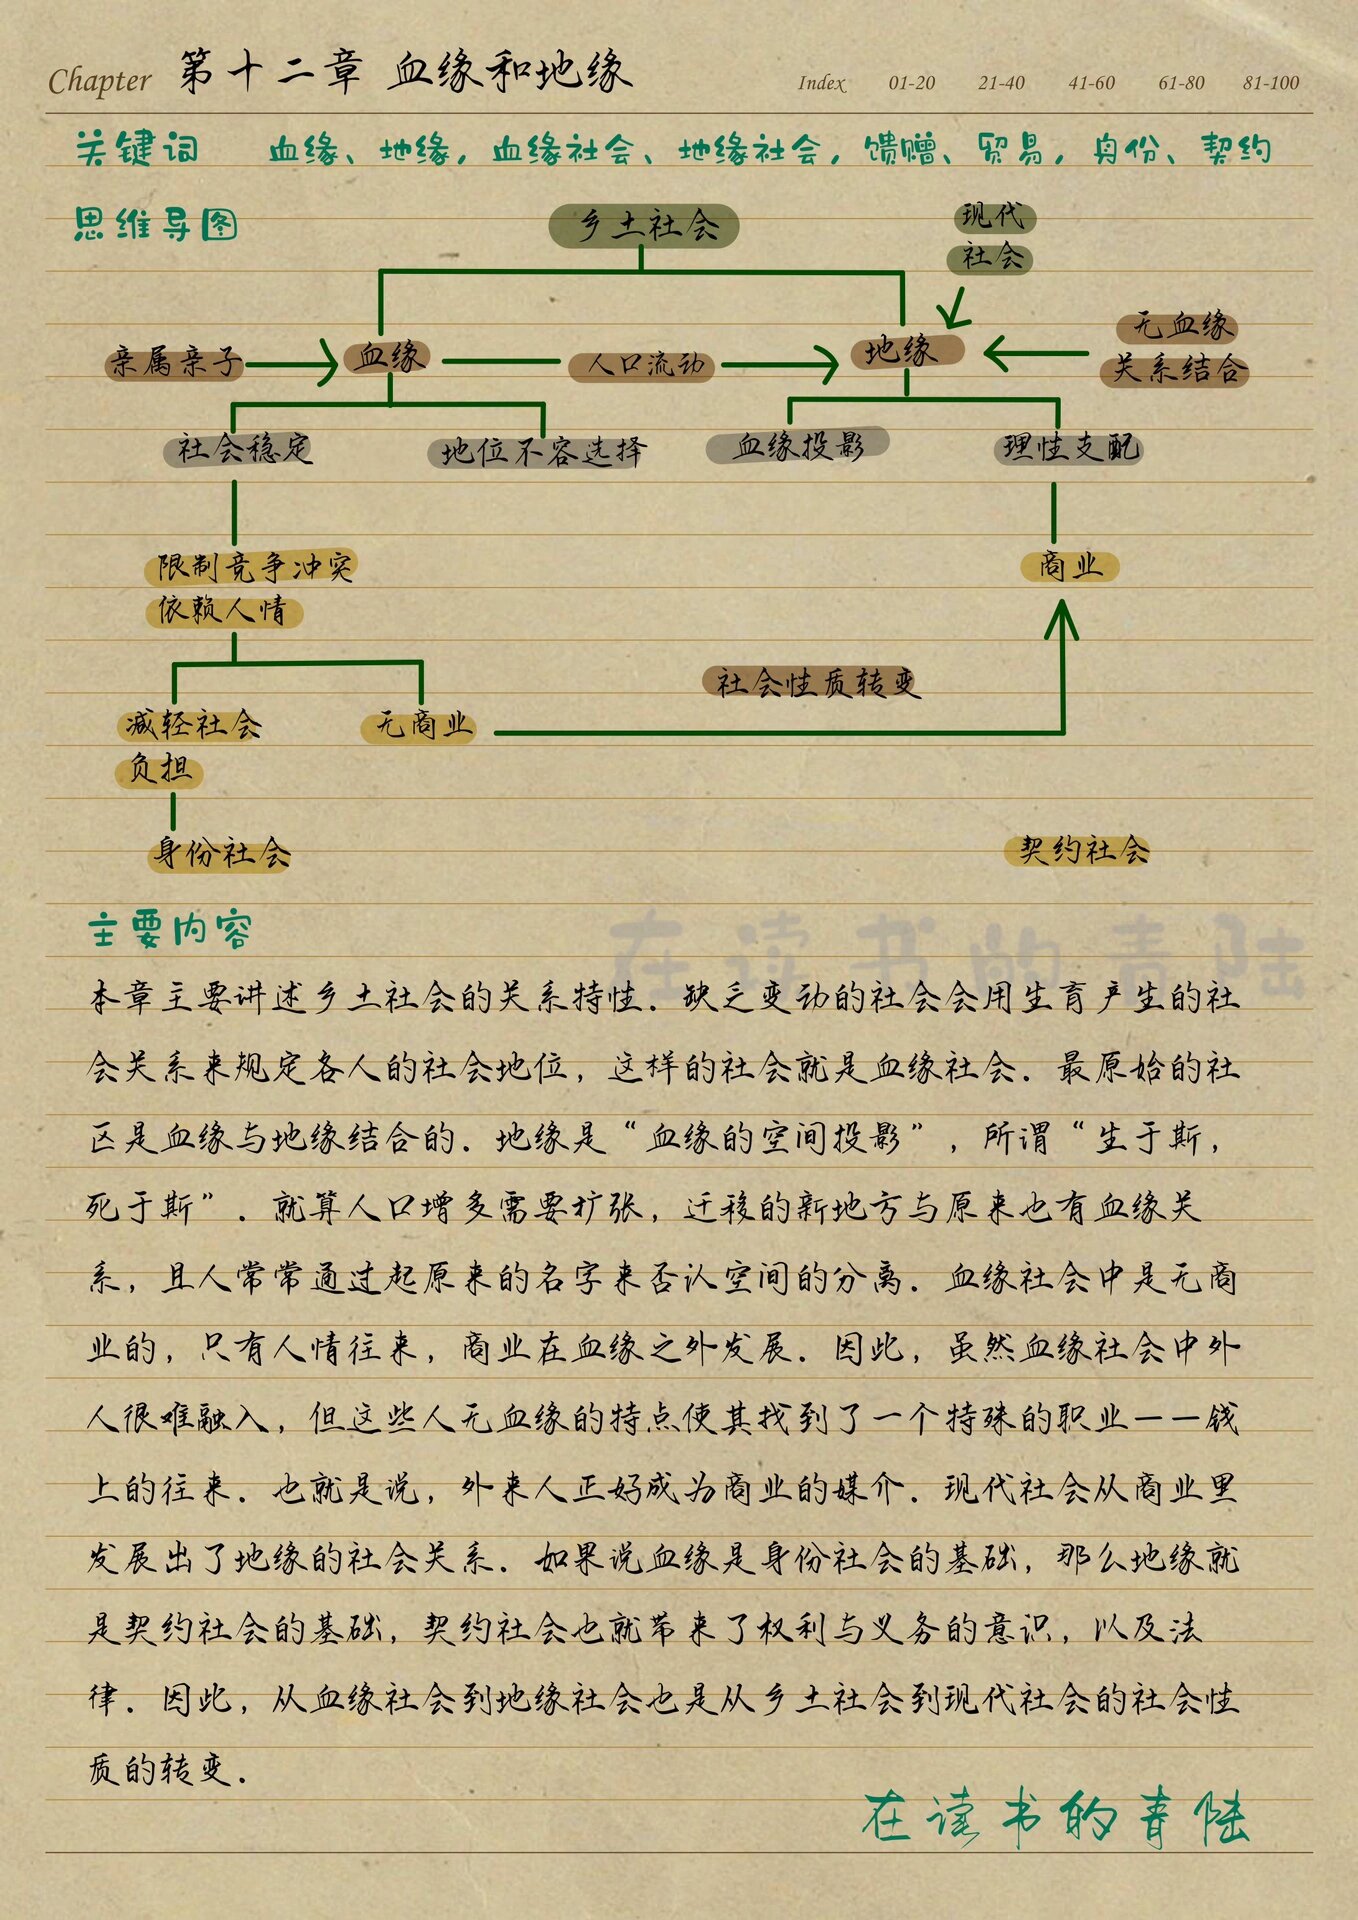 Chapter 第十二章 血缘和地缘
Index 01-20 21-40 41-60 61-80 81-100
关键词 血缘、地缘，血缘社会、地缘社会，馈赠、贸易，身份、契约
思维导图
乡土社会
现代
社会
亲属亲子
血缘
人口流动
地缘
无血缘
关系结合
社会稳定
地位不容选择
血缘投影
理性支配
限制竞争冲突
依赖人情
商业
社会性质转变
减轻社会
负担
无商业
身份社会
契约社会
主要内容
在读书的青陆
本章主要讲述乡土社会的关系特性．缺乏变动的社会会用生育产生的社
会关系来规定各人的社会地位，这样的社会就是血缘社会．最原始的社
区是血缘与地缘结合的．地缘是“血缘的空间投影”，所谓“生于斯，
死于斯”．就算人口增多需要扩张，迁移的新地方与原来也有血缘关
系，且人常常通过起原来的名字来否认空间的分离．血缘社会中是无商
业的，只有人情往来，商业在血缘之外发展．因此，虽然血缘社会中外
人很难融入，但这些人无血缘的特点使其找到了一个特殊的职业——钱
上的往来．也就是说，外来人正好成为商业的媒介．现代社会从商业里
发展出了地缘的社会关系．如果说血缘是身份社会的基础，那么地缘就
是契约社会的基础，契约社会也就带来了权利与义务的意识，以及法
律．因此，从血缘社会到地缘社会也是从乡土社会到现代社会的社会性
质的转变．
在读书的青陆